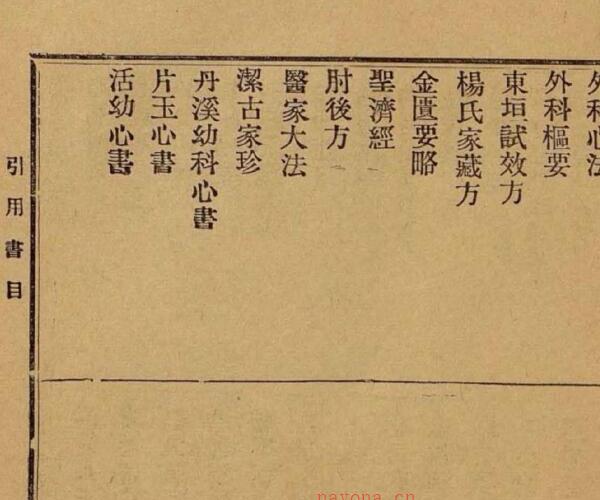 外科心法
外科樞要
東垣試效方
楊氏家藏方
金匱要略
聖濟經
肘後方
醫家大法
潔古家珍
丹溪幼科心書
片玉心書
活幼心書
引用書目
nayona.cn